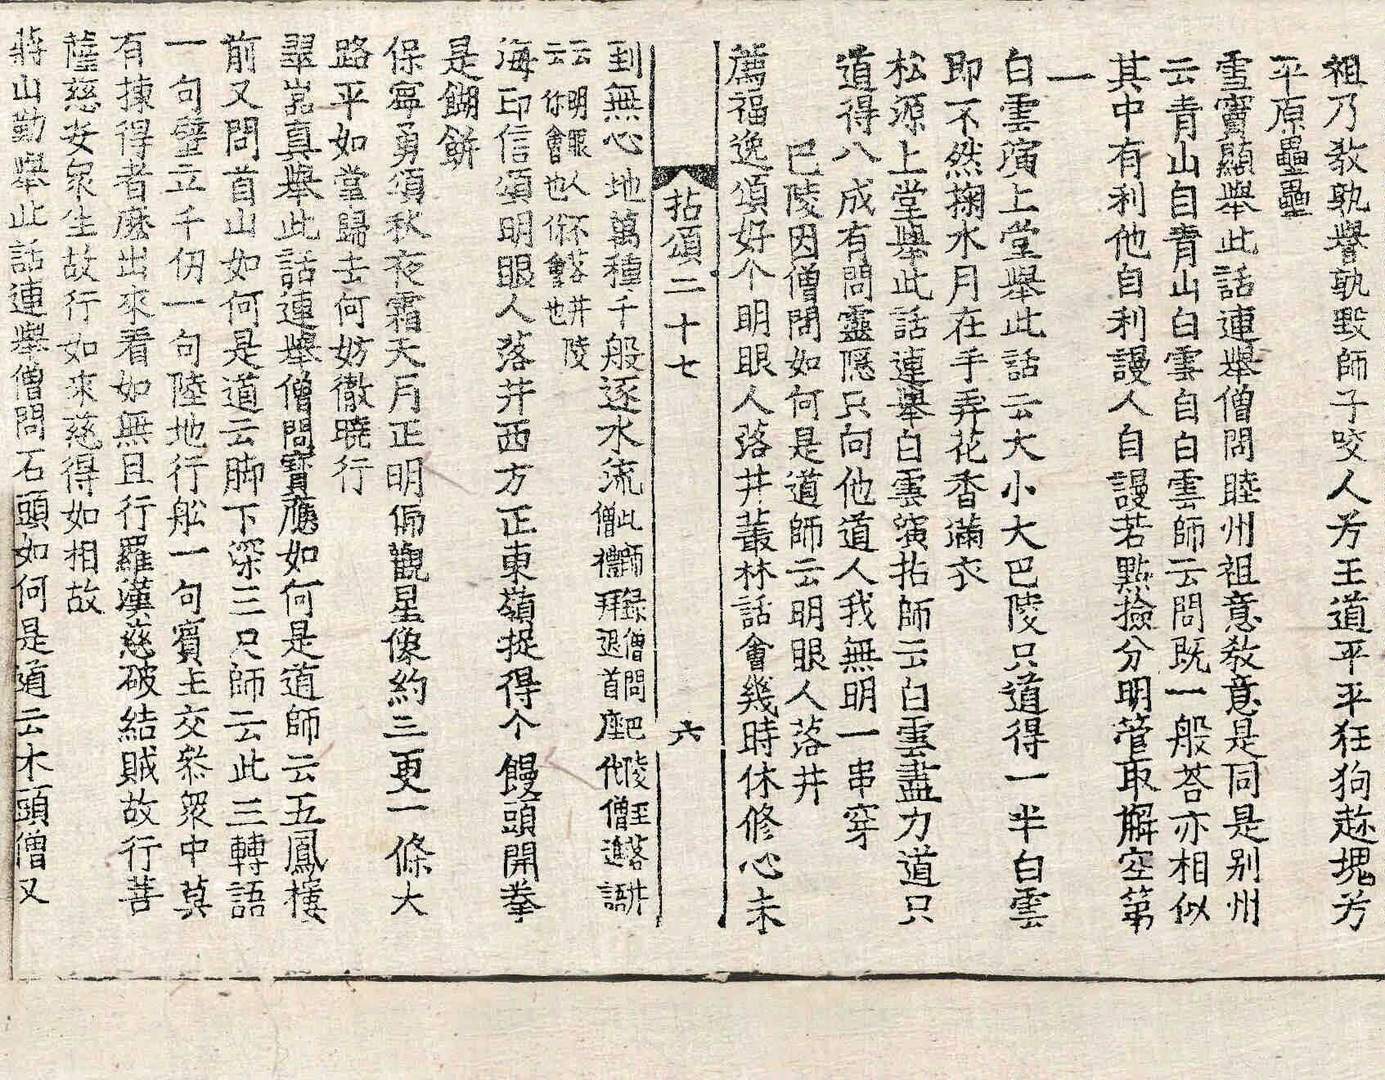 祖乃敎孰譽孰毀師子咬人芳王道平平狂狗趂塊芳
平原壘壘
雪竇顯舉此話連舉僧問睦州祖意敎意是同是别州
云青山自青山白雲自白雲師云問旣一般荅亦相似
其中有利他自利謾人自謾若點撿分明管取解空第
一
白雲演上堂舉此話云大小大巴陵只道得一半白雲
即不然掬水月在手弄花香滿衣
松源上堂舉此話連舉白雲演拈師云白雲盡力道只
道得八成有問靈隱只向他道人我無明一串穿
巴陵因僧問如何是道師云明眼人落井
薦福逸頌好个明眼人落井叢林話會幾時休修心未
拈頌二十七 六
到無心地萬種千般逐水流
此師錄僧問巴陵至落井
僧禮拜退首座代僧進語
云明眼人不落井陵
云你會也你會也
海印信頌明眼人落井西方正東嶺捉得个饅頭開拳
是餬餅
保寧勇頌秋夜霜天月正明俻觀星像約三更一條大
路平如掌歸去何妨徹曉行
翠嵓真舉此話連舉僧問寶應如何是道師云五鳳樓
前又問首山如何是道云脚下深三尺師云此三轉語
一句壁立千仞一句陸地行舩一句賓主交叅衆中莫
有揀得者麽出來看如無且行羅漢慈破結賊故行菩
薩慈安衆生故行如來慈得如相故
蔣山勤舉此話連舉僧問石頭如何是道云木頭僧又